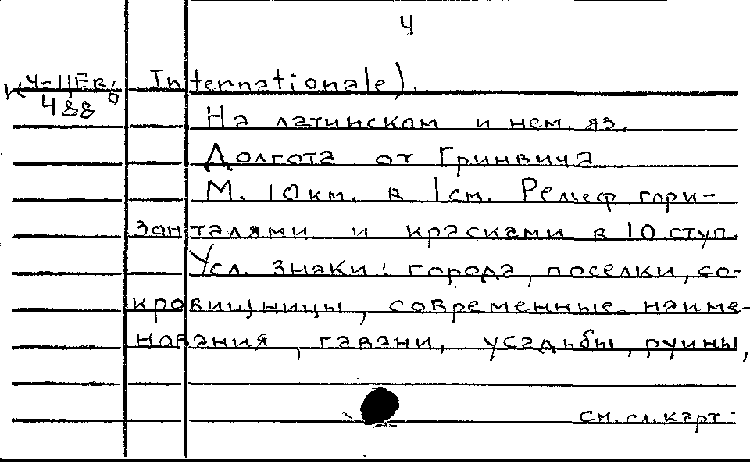 4
К 4-ЦЕв. Internationale).
488
На латинском и нем. яз.
Долгота от Гринвича
М. 10км. в 1см. Рельеф гори-
зонталями и красками в 10 ступ.
Усл. знаки: города, поселки, со-
кровищницы, современные наиме-
нования, гавани, усадьбы, руины,
см. сл. карт.